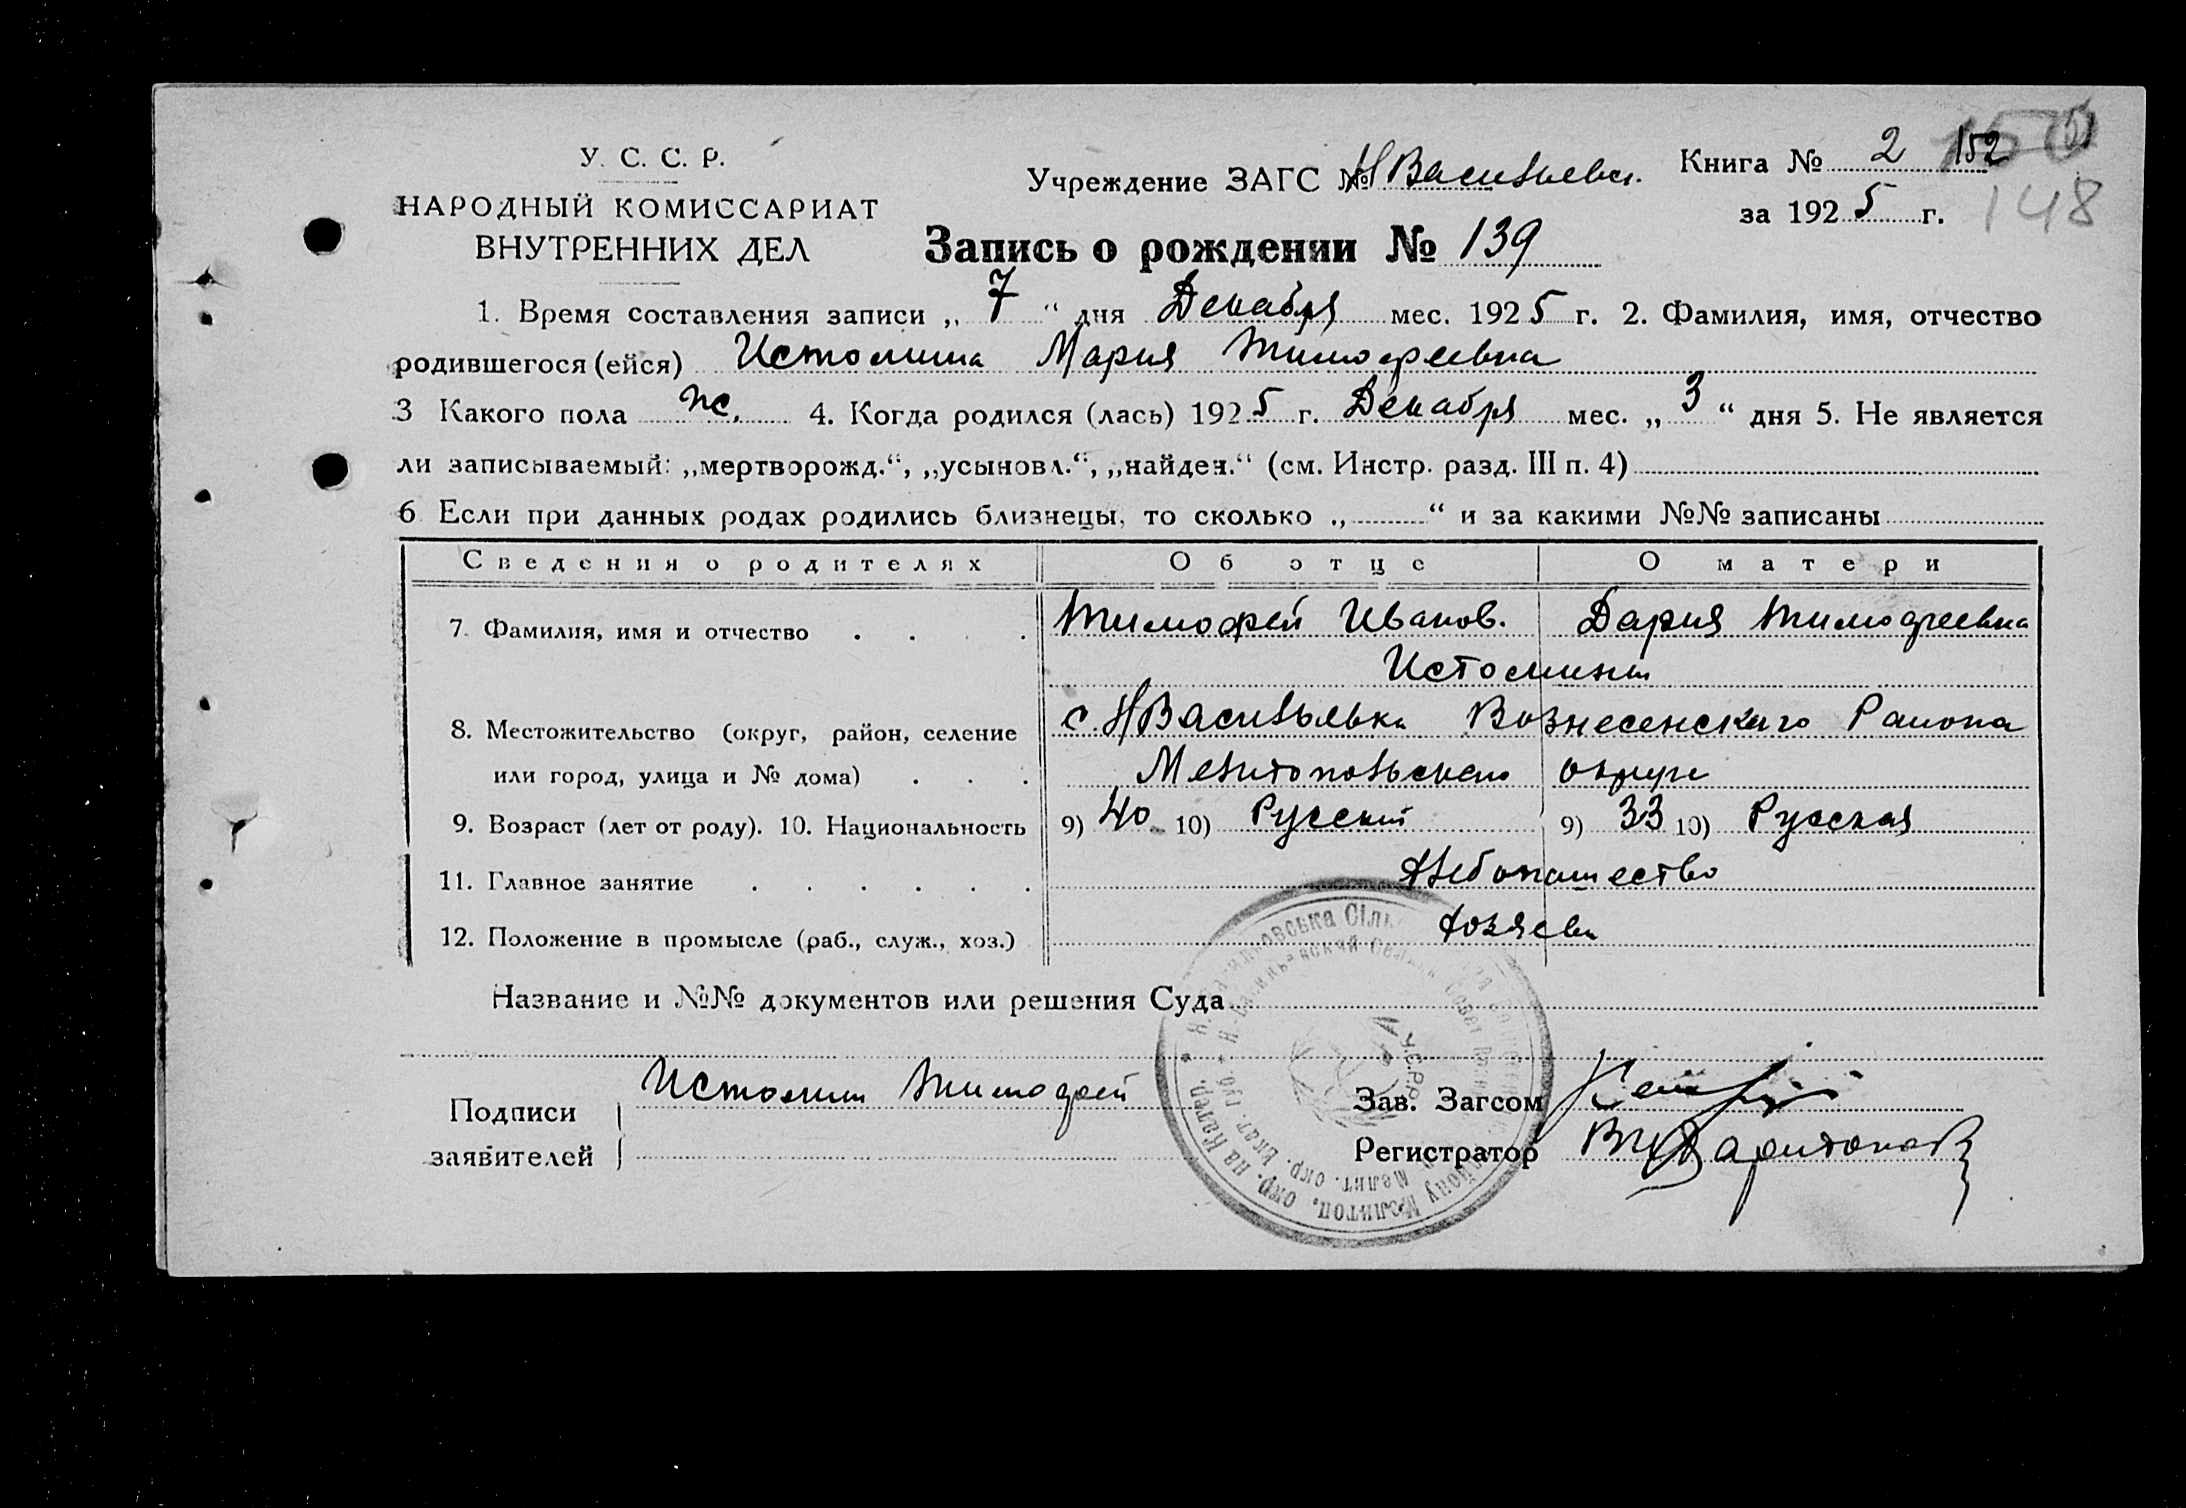 У. С. С. Р.
НАРОДНЫЙ КОМИССАРИАТ
ВНУТРЕННИХ ДЕЛ
Учреждение ЗАГС № Н Васильевк.
Книга № 2 152
за 1925 г. 148
Запись о рождении № 139
1. Время составления записи „ 7 “ дня Декабря мес. 1925 г. 2. Фамилия, имя, отчество
родившегося (ейся) Истомина Мария Тимофеевна
3 Какого пола ж. 4. Когда родился (лась) 1925 г. Декабря мес. „ 3 “ дня 5. Не является
ли записываемый: „мертворожд.“, „усыновл.“, „найден.“ (см. Инстр. разд. III п. 4)
6 Если при данных родах родились близнецы, то сколько „ “ и за какими №№ записаны
Сведения о родителях Об отце О матери
7. Фамилия, имя и отчество . . . . Тимофей Иванов. Дария Тимофеевна
Истомины
8. Местожительство (округ, район, селение с. Н Васильевка Вознесенского Района
или город, улица и № дома) . . . Мелитопольского округа
9. Возраст (лет от роду). 10. Национальность 9) 40 10) Русский 9) 33 10) Русская
11. Главное занятие . . . . . . Хлебопашество
12. Положение в промысле (раб., служ., хоз.) Хозяева
Название и №№ документов или решения Суда
Подписи Истомин Тимофей
заявителей
Зав. Загсом
Регистратор В Харитонов
У.С.Р.Р.